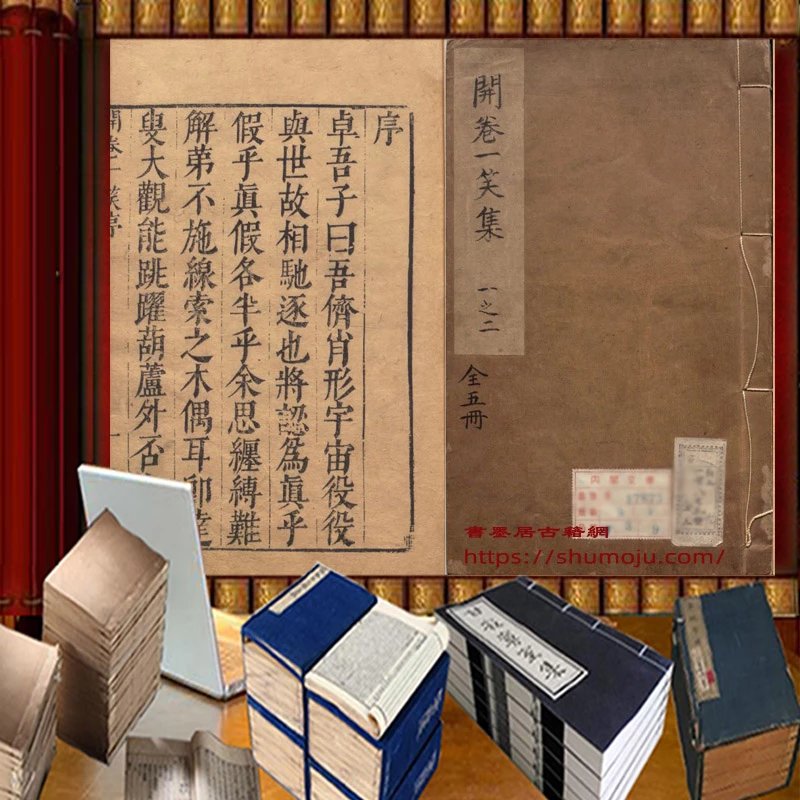 序
卓吾子曰吾儕肖形宇宙役役
與世故相馳逐也將認為眞乎
假乎眞假各半乎余思纏縛難
解弟不施線索之木偶耳卽達
叟大觀能跳躍葫蘆外否
開卷一笑序
開卷一笑集 一之二
全五冊
書墨居古籍網
https://shumoju.com/